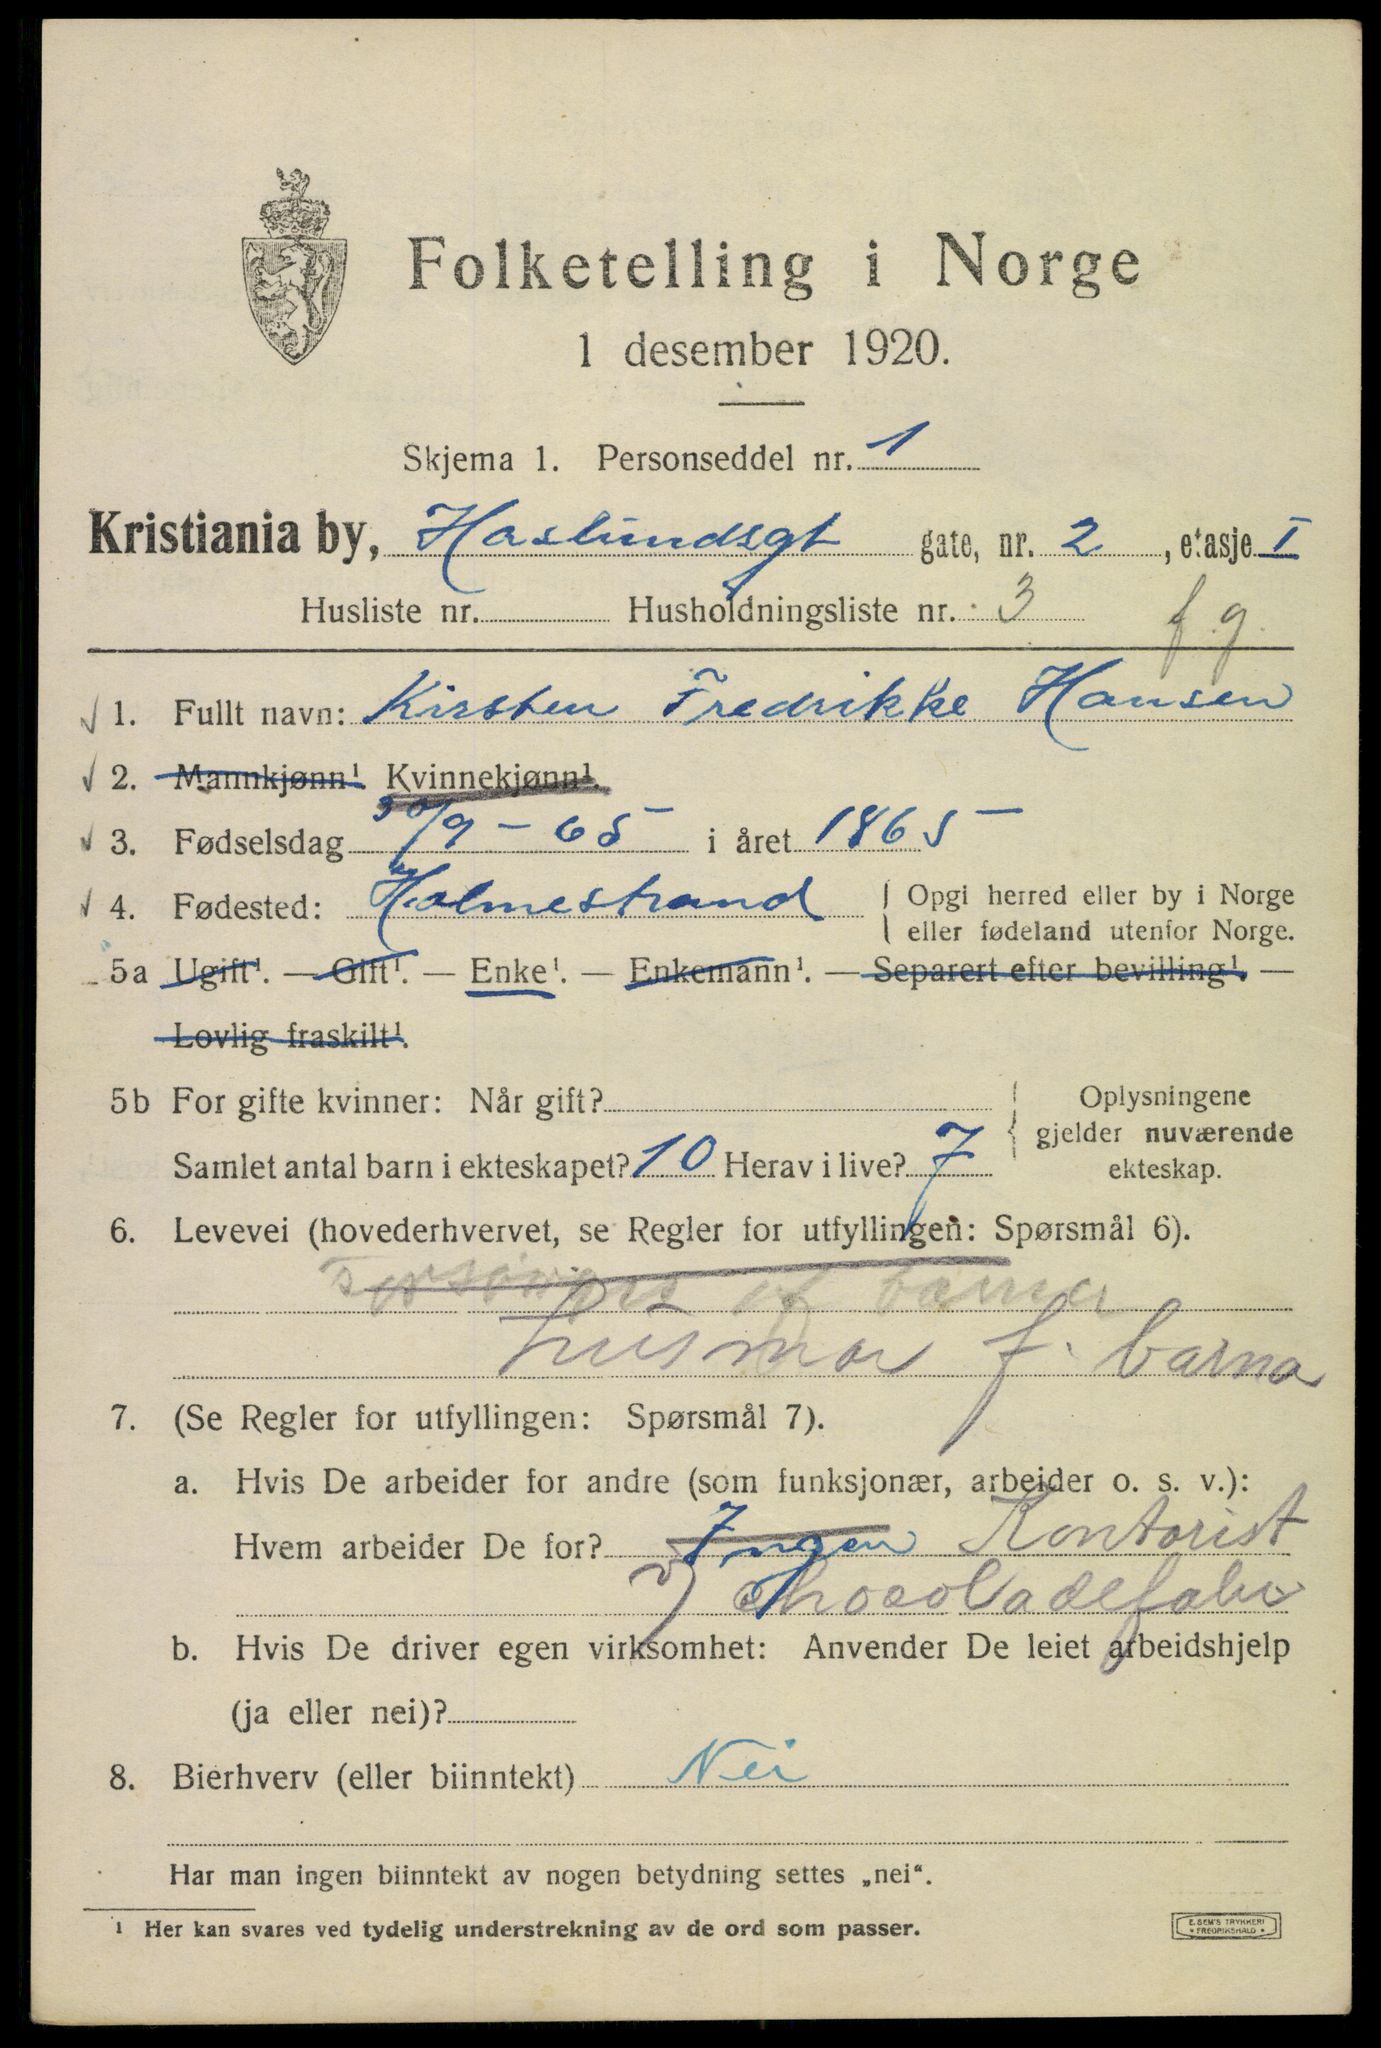 Folketelling i Norge
1 desember 1920.
Skjema 1. Personseddel nr. 1
Kristiania by, Haslundsgt gate, nr. 2, etasje I
Husliste nr. Husholdningsliste nr. 3 f. g.
1. Fullt navn: Kirsten Fredrikke Hansen
2. Mannkjønn¹. Kvinnekjønn¹.
3. Fødselsdag 30/9 - 65 i året 1865
4. Fødested: Holmestrand { Opgi herred eller by i Norge
eller fødeland utenfor Norge.
5a Ugift¹. — Gift¹. — Enke¹. — Enkemann¹. — Separert efter bevilling¹. —
Lovlig fraskilt¹.
5b For gifte kvinner: Når gift? { Oplysningene
gjelder nuværende
ekteskap.
Samlet antal barn i ekteskapet? 10 Herav i live? 7
6. Levevei (hovederhvervet, se Regler for utfyllingen: Spørsmål 6).
Forsørges af barna
husmor f. barna
7. (Se Regler for utfyllingen: Spørsmål 7).
a. Hvis De arbeider for andre (som funksjonær, arbeider o. s. v.):
Hvem arbeider De for? Ingen Kontorist
v/ Chocoladefabr
b. Hvis De driver egen virksomhet: Anvender De leiet arbeidshjelp
(ja eller nei)?
8. Bierhverv (eller biinntekt) Nei
Har man ingen biinntekt av nogen betydning settes „nei“.
¹ Her kan svares ved tydelig understrekning av de ord som passer.
E. SEM'S TRYKKERI
* FREDRIKSHALD *